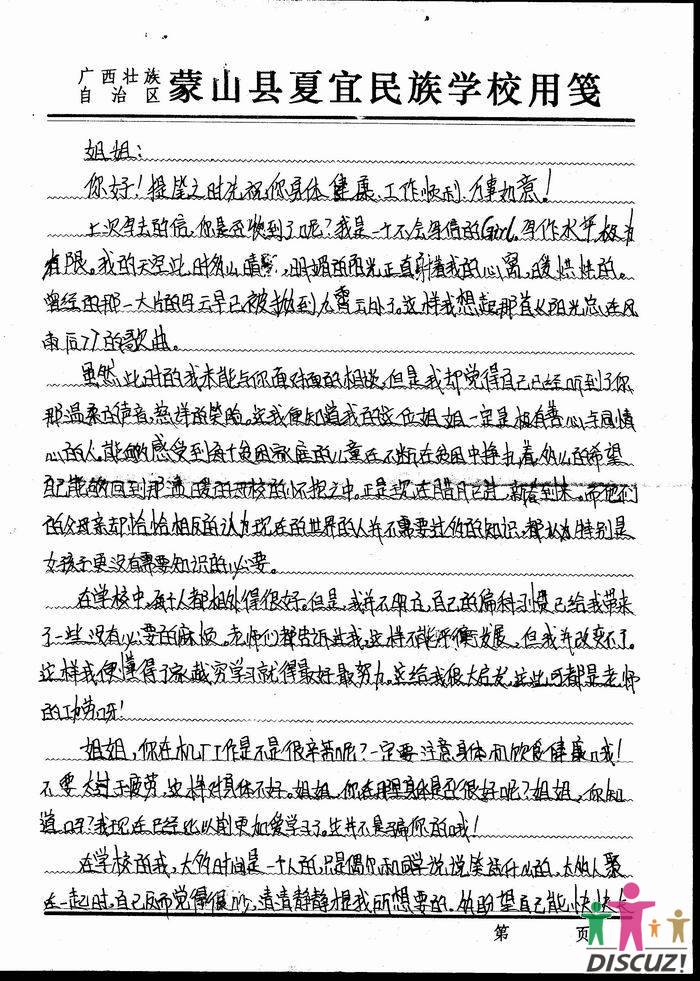 广西壮族
自治区 蒙山县夏宜民族学校用笺
姐姐:
你好!提笔之时先祝你身体健康、工作顺利、万事如意!
上次写去的信,你是否收到了呢?我是一个不会写信的Girl,写作水平极为
有限。我的天空此时多么晴朗,明媚的阳光正直射着我的心窝,暖烘烘的。
曾经的那一大片的乌云早已被抛到九霄云外了。这样我想起那首《阳光总在风
雨后》的歌曲。
虽然,此时的我未能与你面对面的相谈,但是我却觉得自己已经听到了你
那温柔的声音,慈祥的笑脸。这我便知道我的这位姐姐一定是极有善心与同情
心的人。能够感受到每个贫困家庭的儿童在不断在贫困中挣扎着,多么的希望
能够回到那温暖的母校的怀抱之中。正是现在腊月已过,新春到来。而他们
的父母亲却恰恰相反的认为现在的世界的人并不需要过约的知识,都认为特别是
女孩子更没有需要知识的必要。
在学校中,每个人都相处得很好。但是,我并不明白,自己的偏科习惯已给我带来
了一些没有必要的麻烦。老师们都告诉过我,这样不能平衡发展,但我并改变不了。
这样我便懂得了家越穷学习就得最好最努力。这给我很大启发,这些可都是老师
的功劳呀!
姐姐,你在机厂工作是不是很辛苦呢?一定要注意身体和饮食健康哦!
不要太过于疲劳,这样对身体不好。姐姐,你在那里身体是否很好呢?姐姐,你知
道吗?我现在已经比以前更加爱学习了。这并不是骗你的哦!
在学校的我,大多时间是一个人的,只是偶尔和同学说说笑话什么的。太多人聚
在一起时,自己反而觉得很吵,清清静静才是我所想要的。多盼望自己能快快长
第 页
DISCUZ!